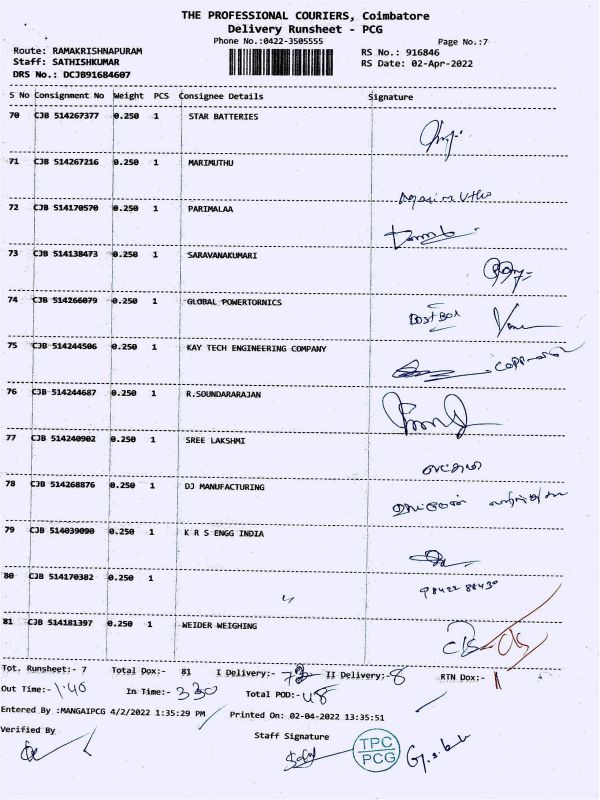 THE PROFESSIONAL COURIERS, Coimbatore
Delivery Runsheet - PCG
Phone No.:0422-3505555 Page No.:7
Route: RAMAKRISHNAPURAM RS No.: 916846
Staff: SATHISHKUMAR RS Date: 02-Apr-2022
DRS No.: DCJB91684607
S No Consignment No Weight PCS Consignee Details Signature
70 CJB 514267377 0.250 1 STAR BATTERIES
71 CJB 514267216 0.250 1 MARIMUTHU
72 CJB 514170570 0.250 1 PARIMALAA
73 CJB 514138473 0.250 1 SARAVANAKUMARI
74 CJB 514266079 0.250 1 GLOBAL POWERTORNICS
75 CJB 514244506 0.250 1 KAY TECH ENGINEERING COMPANY
76 CJB 514244687 0.250 1 R.SOUNDARARAJAN
77 CJB 514240902 0.250 1 SREE LAKSHMI
78 CJB 514268876 0.250 1 DJ MANUFACTURING
79 CJB 514039090 0.250 1 K R S ENGG INDIA
80 CJB 514170382 0.250 1 98422 88430
81 CJB 514181397 0.250 1 WEIDER WEIGHING
Tot. Runsheet:- 7 Total Dox:- 81 I Delivery:- II Delivery:- 8 RTN Dox:- 1
Out Time:- 1.40 In Time:- 3 30 Total POD:- 48
Entered By :MANGAIPCG 4/2/2022 1:35:29 PM Printed On: 02-04-2022 13:35:51
Verified By Staff Signature
TPC
PCG